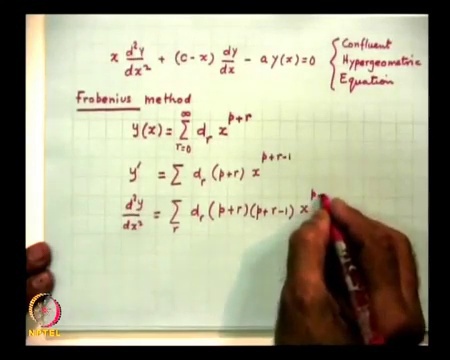 x d²y/dx² + (c-x) dy/dx - a y(x) = 0 { Confluent Hypergeometric Equation
Frobenius method
y(x) = ∑_{r=0}^{∞} d_r x^{p+r}
y' = ∑ d_r (p+r) x^{p+r-1}
d²y/dx² = ∑_r d_r (p+r)(p+r-1) x^p
NPTEL